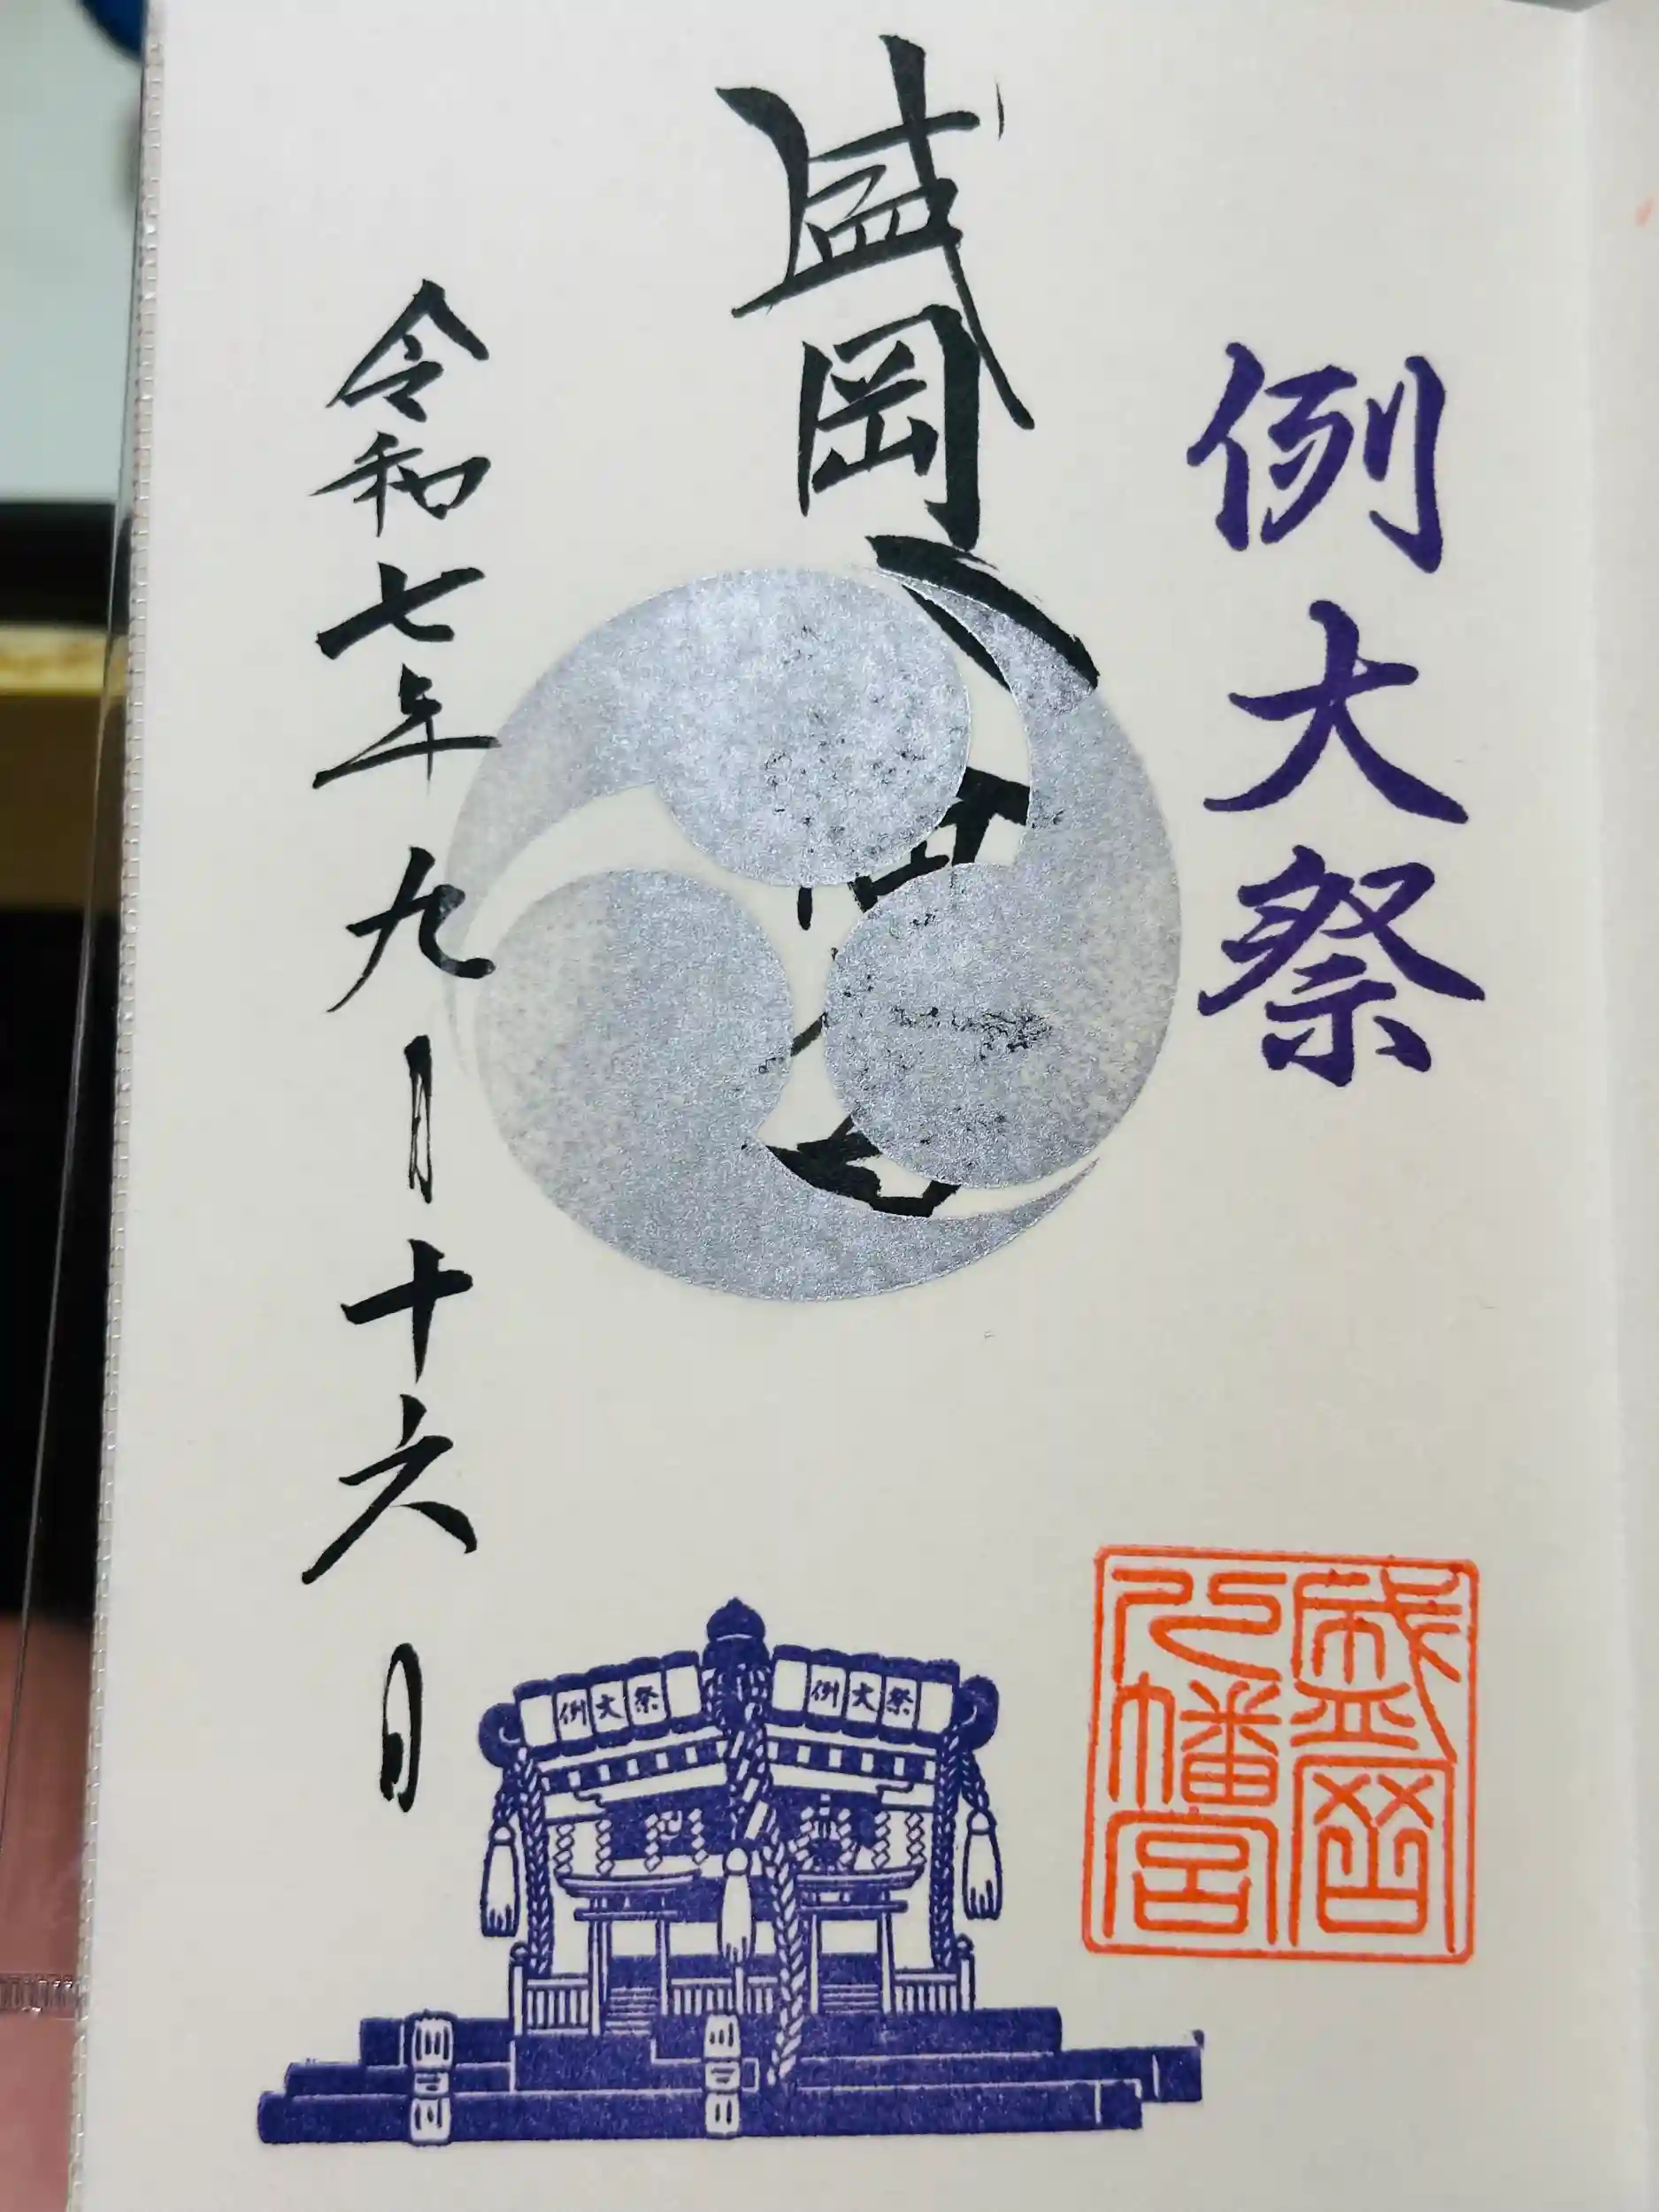 例大祭
盛岡八幡宮
令和七年九月十六日
盛岡
八幡宮
例大祭
例大祭